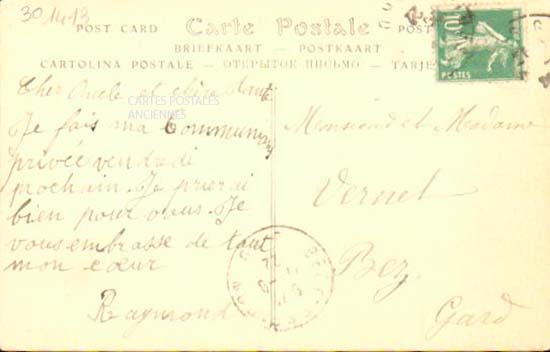 30 14-13
POST CARD Carte Postale POST
BRIEFKAART — POSTKAART
CARTOLINA POSTALE — ОТКРЫТОЕ ПИСЬМО — TARJE
10
POSTES
CARTES POSTALES
ANCIENNES
Cher Oncle et chère Tante
Je fais ma Communion
privée vendredi
prochain. Je prierai
bien pour vous. Je
vous embrasse de tout
mon cœur
Raymond
Monsieur et Madame
Vernet
Bez
Gard